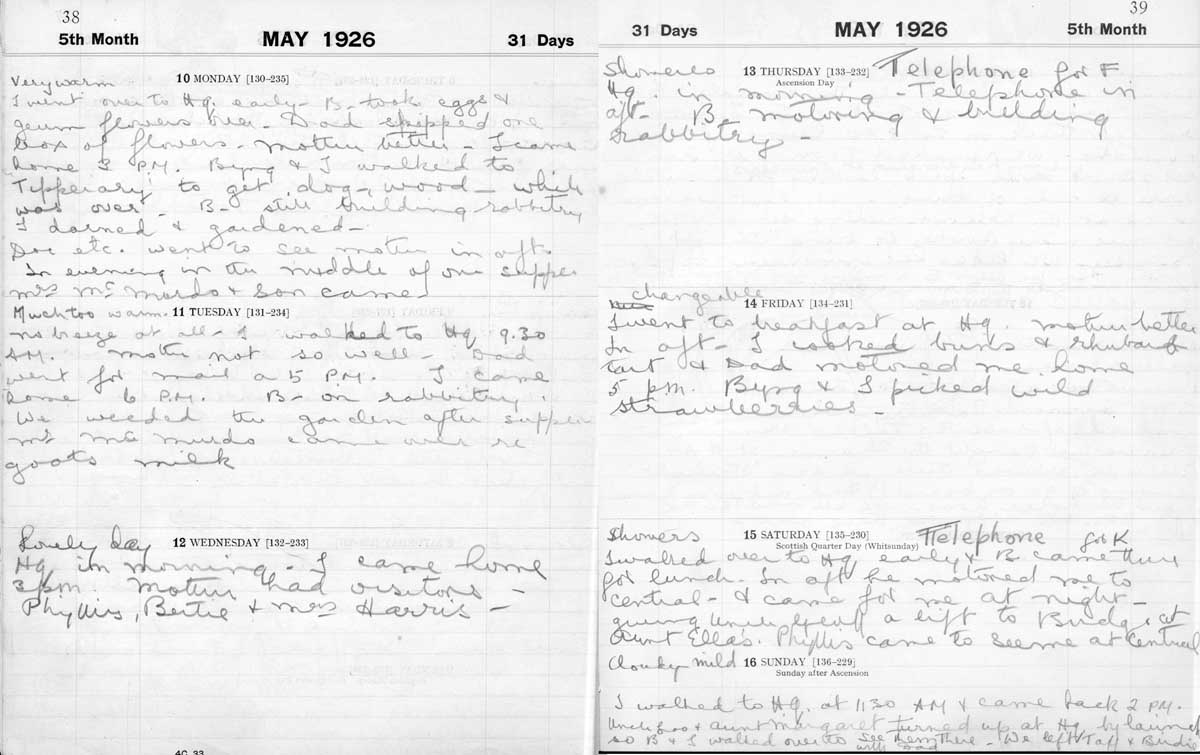 38
5th Month MAY 1926 31 Days
Very warm 10 MONDAY [130-235]
I went over to Hq. early - B. took eggs &
geum flowers over - Dad shipped one
box of flowers - mother better - I came
home 3 P.M. Byng & I walked to
Tipperary to get dog-wood - which
was over - B - still building rabbitry
I darned & gardened -
Doc etc. went to see mother in aft.
In evening in the middle of our supper
Mrs McMurdo & son came
Much too warm. 11 TUESDAY [131-234]
no breeze at all - I walked to Hq 9.30
AM. mother not so well - Dad
went for mail a 5 P.M. I came
home 6 P.M. B - on rabbitry.
We weeded the garden after supper
McMurdo came over re
goats milk
Lovely day 12 WEDNESDAY [132-233]
Hq in morning - I came home
3 pm. Mother had visitors -
Phyllis, Bertie & Mrs Harris -
4G 33
39
31 Days MAY 1926 5th Month
Showers 13 THURSDAY [133-232] Telephone for F
Ascension Day
Hq. in morning - Telephone in
aft - B. motoring & building
rabbitry -
changeable
14 FRIDAY [134-231]
I went to breakfast at Hq. mother better
In aft - I cooked buns & rhubarb
tart & Dad motored me home
5 pm. Byng & I picked wild
strawberries -
Showers 15 SATURDAY [135-230] Telephone for K
Scottish Quarter Day (Whitsunday)
I walked over to Hq early & B. came there
for lunch. In aft he motored me to
Central - & came for me at night -
giving Uncle a lift to Burdg. at
Aunt Ella's. Phyllis came to see me at Central
Cloudy mild 16 SUNDAY [136-229]
Sunday after Ascension
I walked to Hq. at 11.30 AM & came back 2 PM.
Uncle & Aunt Margaret turned up at Hq by launch
so B & I walked over to see them there. We left Taff &
with Dad